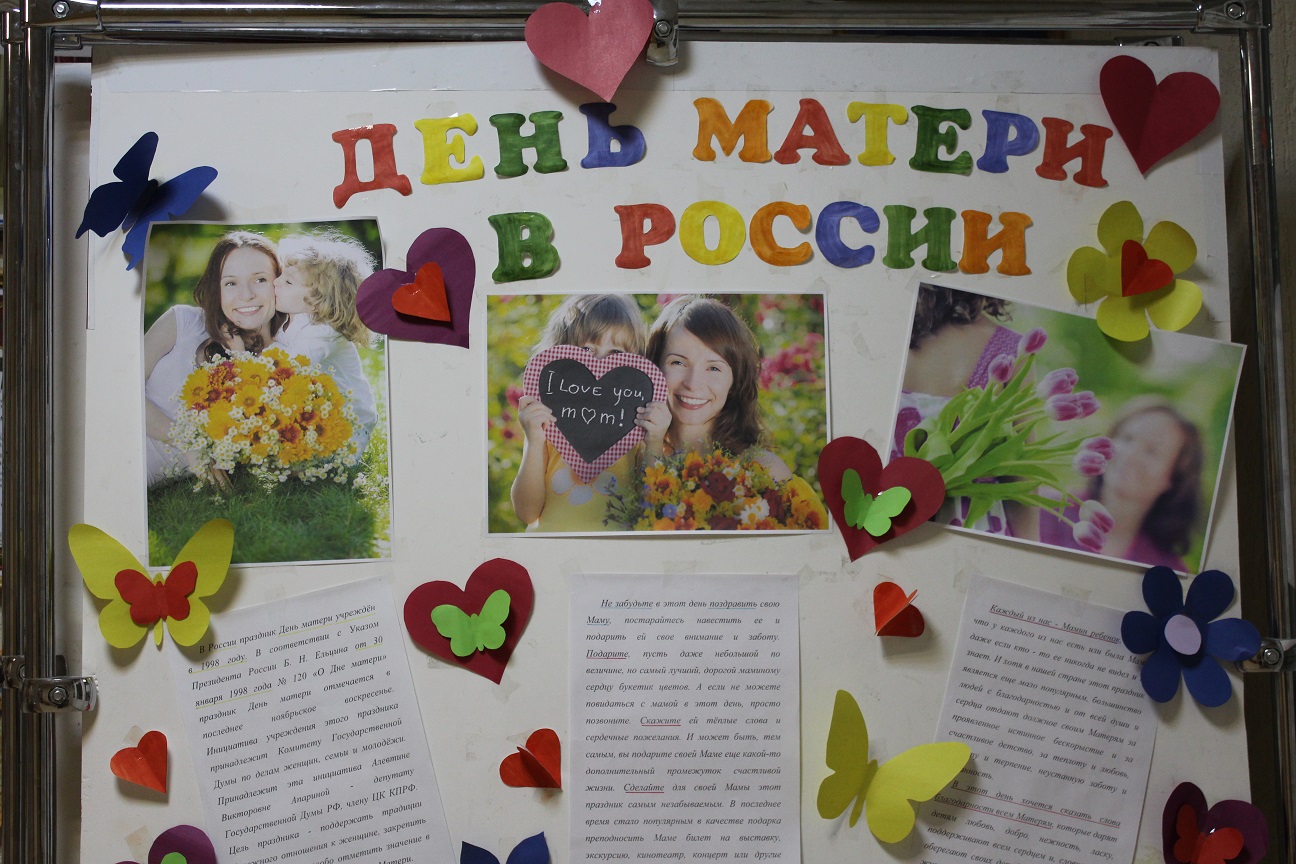 ДЕНЬ МАТЕРИ
В РОССИИ
I LOVE you,
mom!
В России праздник День матери учреждён
в 1998 году. В соответствии с Указом
Президента России Б. Н. Ельцина от 30
января 1998 года № 120 «О Дне матери»
праздник День матери отмечается в
последнее ноябрьское воскресенье.
Инициатива учреждения этого праздника
принадлежит Комитету Государственной
Думы по делам женщин, семьи и молодёжи.
Принадлежит эта инициатива Алевтине
Викторовне Апариной - депутату
Государственной Думы РФ, члену ЦК КПРФ.
Цель праздника - поддержать традиции
отношения к женщине, закрепить
отметить значение в
Матери.
Не забудьте в этот день поздравить свою
Маму, постарайтесь навестить ее и
подарить ей свое внимание и заботу.
Подарите, пусть даже небольшой по
величине, но самый лучший, дорогой маминому
сердцу букетик цветов. А если не можете
повидаться с мамой в этот день, просто
позвоните. Скажите ей тёплые слова и
сердечные пожелания. И может быть, тем
самым, вы подарите своей Маме еще какой-то
дополнительный промежуток счастливой
жизни. Сделайте для своей Мамы этот
праздник самым незабываемым. В последнее
время стало популярным в качестве подарка
преподносить Маме билет на выставку,
экскурсию, кинотеатр, концерт или другие
Каждый из нас - Мамин ребенок
что у каждого из нас есть или была
даже если кто - то ее никогда не видел и
знает. И хотя в нашей стране этот праздник
является еще мало популярным, большинство
людей с благодарностью и от всей души и
сердца отдают должное своим Матерям за
проявленное истинное бескорыстие и за
счастливое детство, за теплоту и любовь,
и терпение, неустанную заботу и
В этот день хочется сказать слова
благодарности всем Матерям, которые дарят
детям любовь, добро, нежность, ласку,
поддерживают всем сердцем и,
оберегают своих